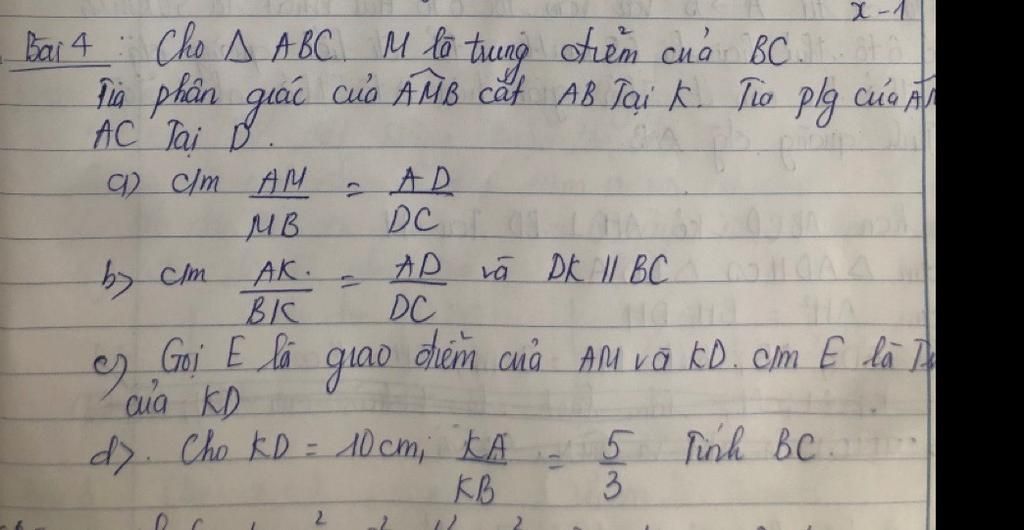 x-1
Bài 4 : Cho △ ABC. M là trung điểm của BC.
Tia phân giác của AMB cắt AB Tại K. Tia p/g của
AC Tại D.
a) c/m AM/MB = AD/DC
b) c/m AK/BK = AD/DC và DK // BC
c) Gọi E là giao điểm của AM và KD. c/m E là
của KD
d). Cho KD = 10cm; KA/KB = 5/3 Tính BC.